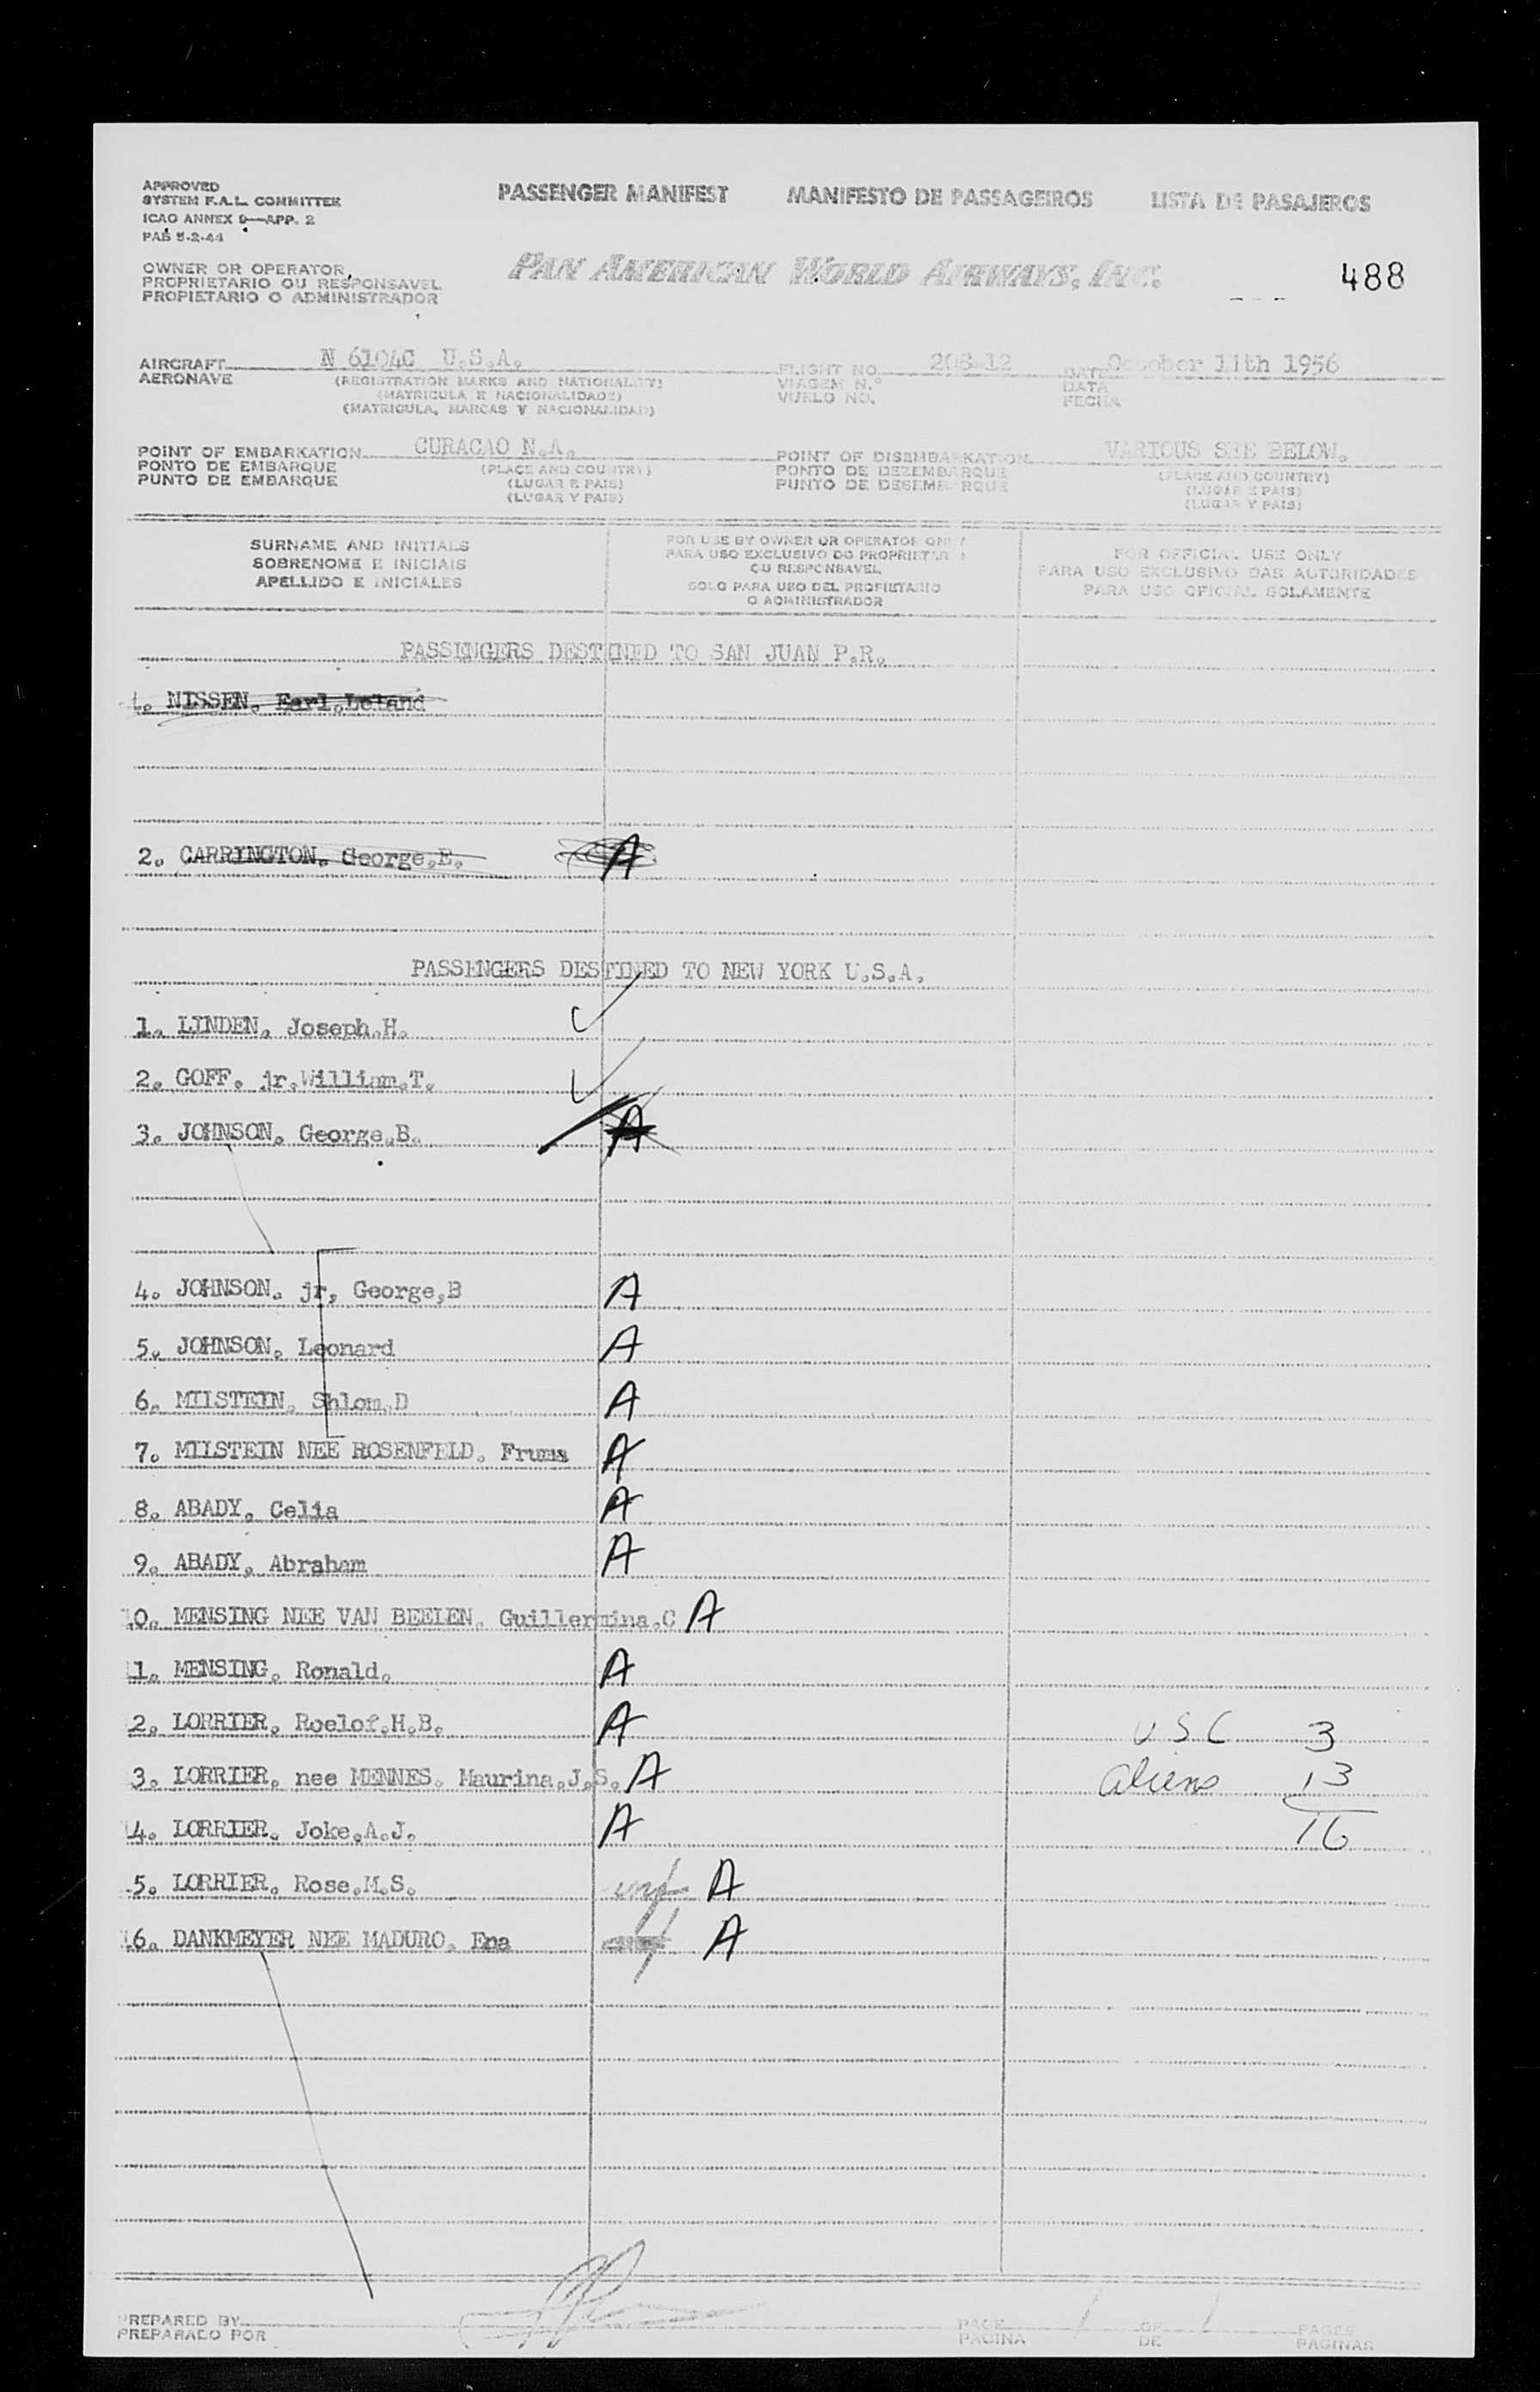 APPROVED
SYSTEM F.A.L. COMMITTEE
ICAO ANNEX 9—APP. 2
PAB 5-2-44
PASSENGER MANIFEST MANIFESTO DE PASSAGEIROS LISTA DE PASAJEROS
OWNER OR OPERATOR
PROPRIETARIO OU RESPONSAVEL
PROPIETARIO O ADMINISTRADOR
PAN AMERICAN WORLD AIRWAYS, INC.
488
AIRCRAFT N 6104C U.S.A. FLIGHT NO. 208-12 DATE October 11th 1956
AERONAVE (REGISTRATION MARKS AND NATIONALITY) VIAGEM N.º DATA
(MATRICULA E NACIONALIDADE) VUELO NO. FECHA
(MATRICULA, MARCAS Y NACIONALIDAD)
POINT OF EMBARKATION CURACAO N.A. POINT OF DISEMBARKATION VARIOUS SEE BELOW.
PONTO DE EMBARQUE (PLACE AND COUNTRY) PONTO DE DEZEMBARQUE (PLACE AND COUNTRY)
PUNTO DE EMBARQUE (LUGAR E PAIS) PUNTO DE DESEMBARQUE (LUGAR E PAIS)
(LUGAR Y PAIS) (LUGAR Y PAIS)
SURNAME AND INITIALS
SOBRENOME E INICIAIS
APELLIDO E INICIALES
FOR USE BY OWNER OR OPERATOR ONLY
PARA USO EXCLUSIVO DO PROPRIETARIO
OU RESPONSAVEL
SOLO PARA USO DEL PROPIETARIO
O ADMINISTRADOR
FOR OFFICIAL USE ONLY
PARA USO EXCLUSIVO DAS AUTORIDADES
PARA USO OFICIAL SOLAMENTE
PASSENGERS DESTINED TO SAN JUAN P.R.
1. NISSEN. Earl.Leland
2. CARRINGTON. George.E. A
PASSENGERS DESTINED TO NEW YORK U.S.A.
1. LINDEN. Joseph.H.
2. GOFF. jr.William.T.
3. JOHNSON. George.B. A
4. JOHNSON. jr, George,B A
5. JOHNSON. Leonard A
6. MILSTEIN. Shlom.D A
7. MILSTEIN NEE ROSENFELD. Fruma A
8. ABADY. Celia A
9. ABADY. Abraham A
10. MENSING NEE VAN BEELEN. Guillermina.C A
11. MENSING. Ronald. A
2. LORRIER. Roelof.H.B. A USC 3
3. LORRIER. nee MENNES. Maurina.J.S. A aliens 13
14. LORRIER. Joke.A.J. A 16
5. LORRIER. Rose.M.S. A
16. DANKMEYER NEE MADURO. Ena A
PREPARED BY
PREPARADO POR
PAGE 1 OF 1 PAGES
PAGINA DE PAGINAS